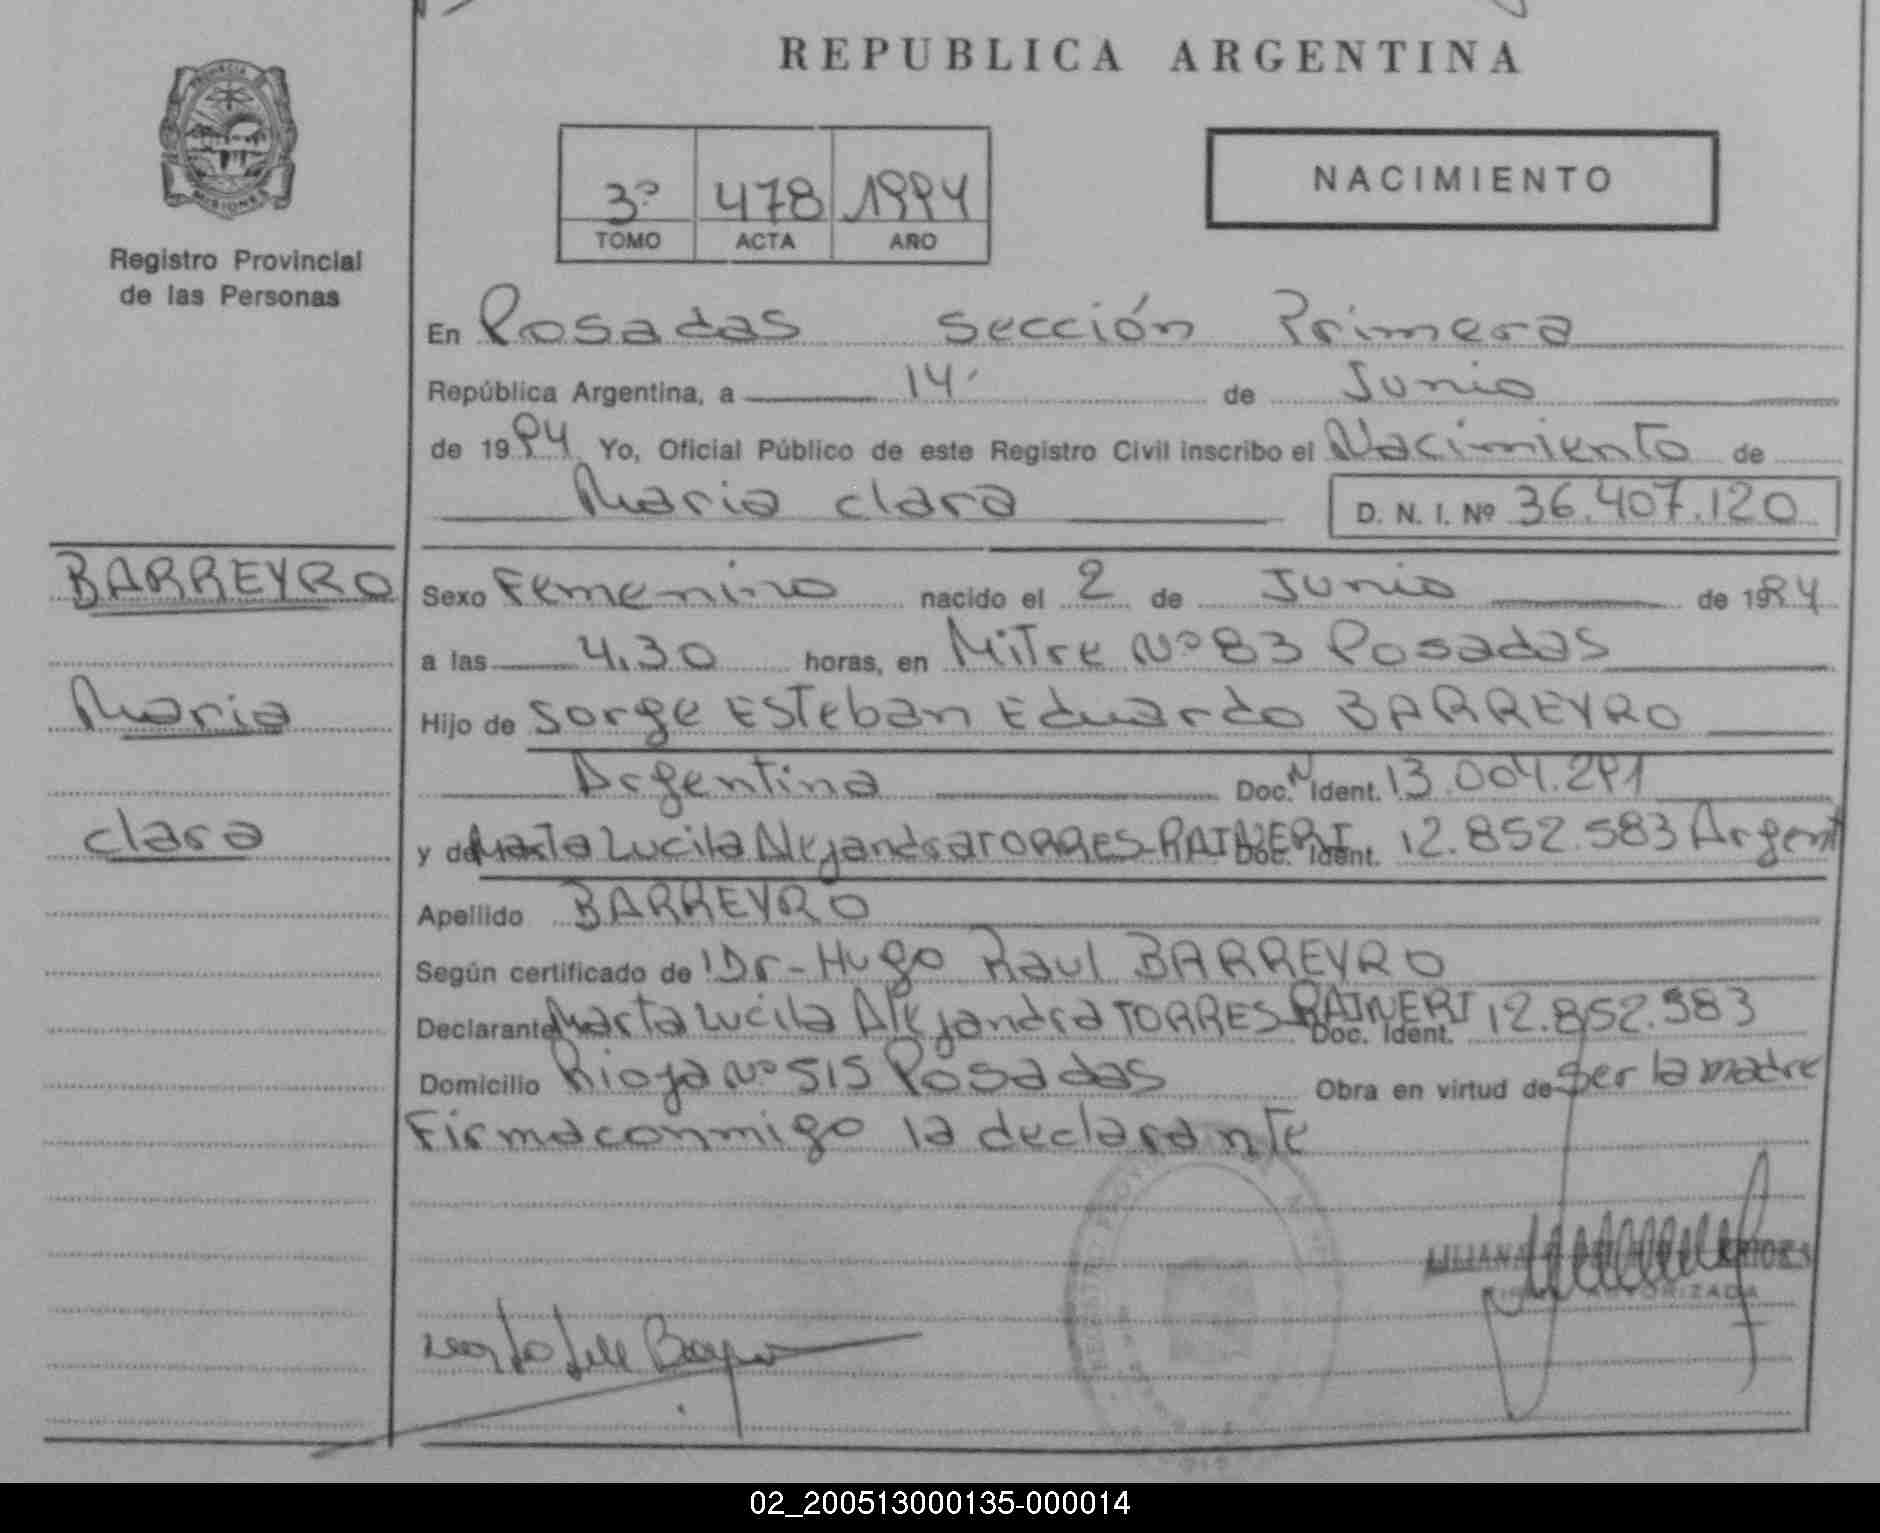 REPUBLICA ARGENTINA
PROVINCIA
MISIONES
Registro Provincial
de las Personas
3º 478 1994
TOMO ACTA AÑO
NACIMIENTO
En Posadas sección Primera
República Argentina, a 14 de Junio
de 1994 Yo, Oficial Público de este Registro Civil inscribo el Nacimiento de
Maria clara D. N. I. Nº 36.407.120
BARREYRO
Maria
clara
Sexo Femenino nacido el 2 de Junio de 1994
a las 4.30 horas, en Mitre Nº 83 Posadas
Hijo de Jorge Esteban Eduardo BARREYRO
Argentina Doc. N Ident. 13.004.291
y de Marta Lucila Alejandra TORRES-RAINERI Doc. Ident. 12.852.583 Argent
Apellido BARREYRO
Según certificado de Dr-Hugo Raul BARREYRO
Declarante Marta Lucila Alejandra TORRES-RAINERI Doc. Ident. 12.852.583
Domicilio Rioja Nº 515 Posadas Obra en virtud de ser la madre
Firma conmigo la declarante
REGISTRO
LILIANA
AUTORIZADA
02_200513000135-000014